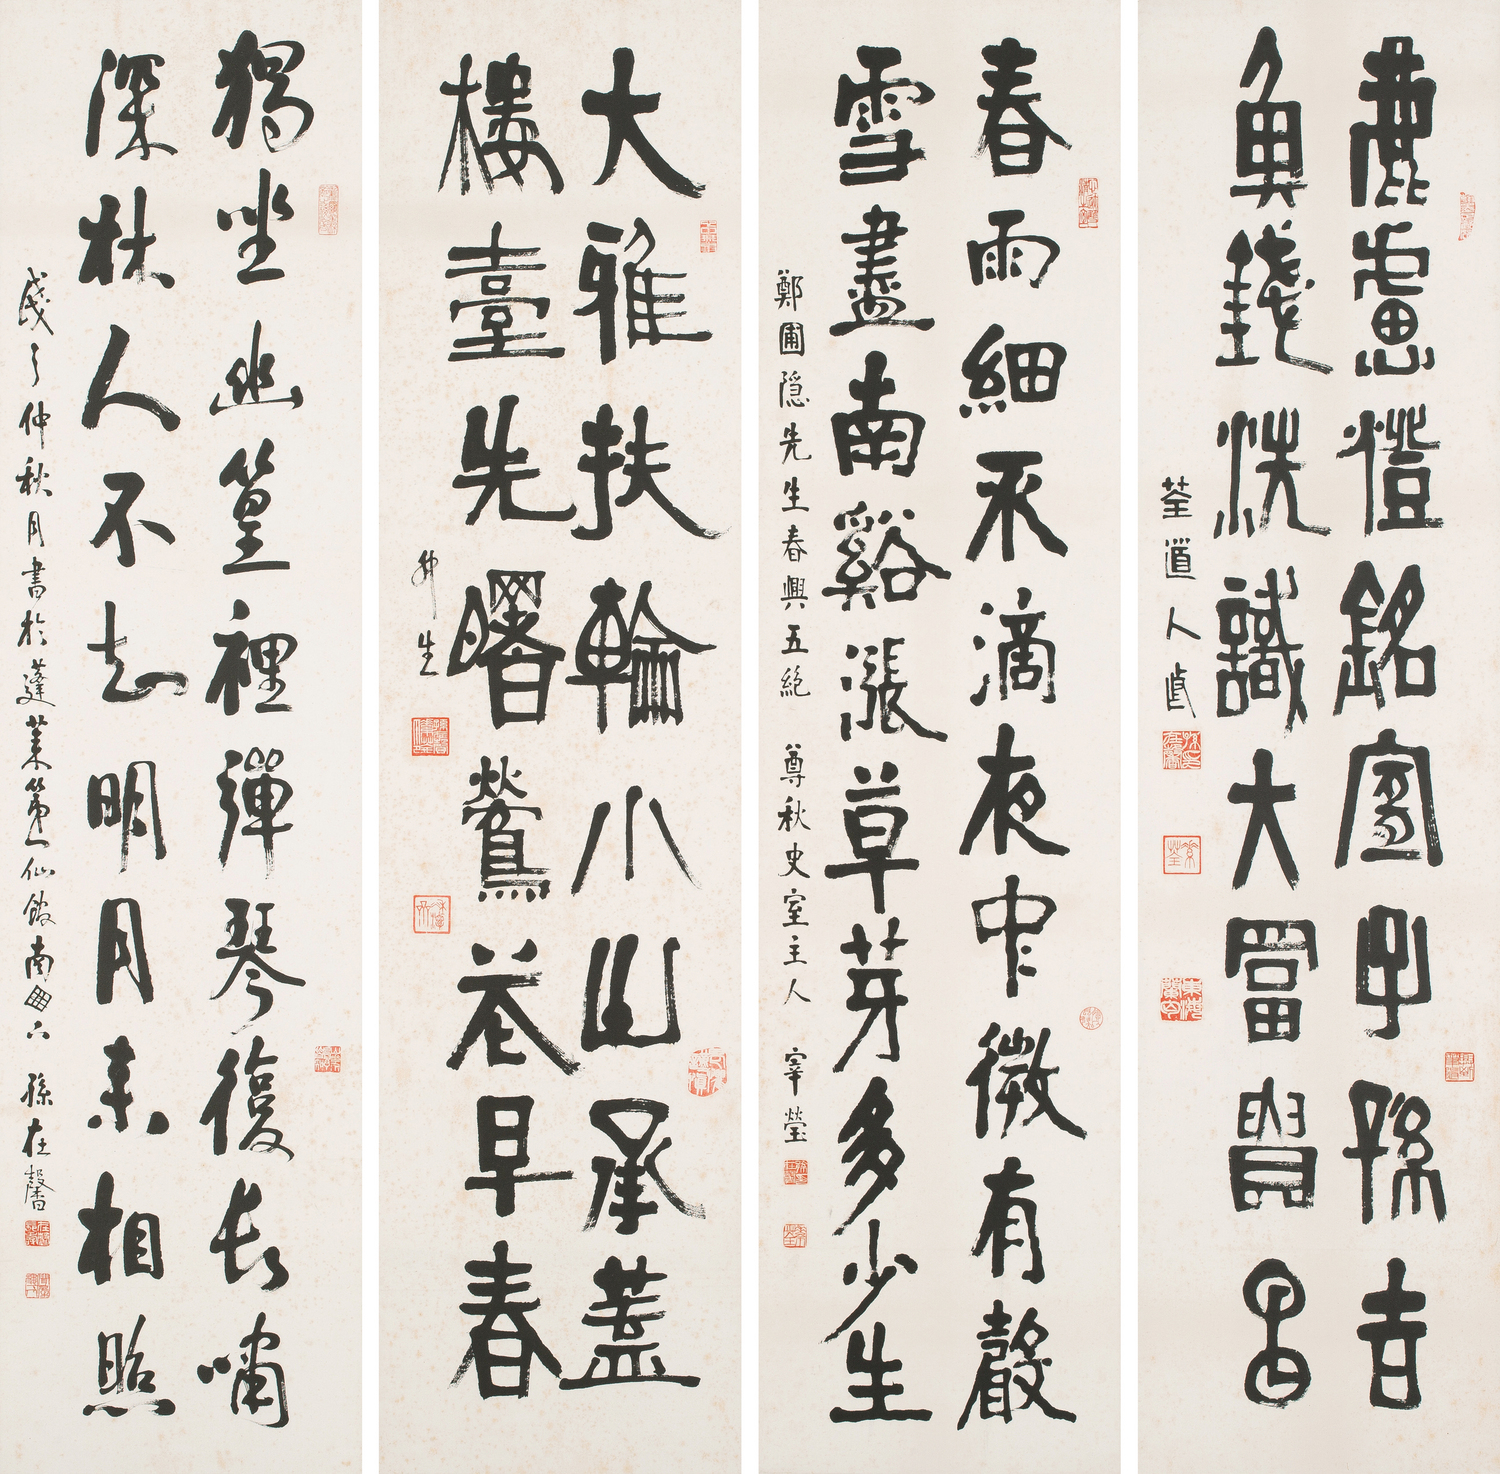 鹿慮燈銘宜子孫吉
魚錢洗識大富貴昌
荃道人
春雨細不滴夜中微有聲
雪盡南谿漲草芽多少生
鄭圃隱先生春興五絶 尊秋史室主人 宰瑩
大雅扶輪小山承蓋
樓臺先曙鶯花早春
艸生
獨坐幽篁裡彈琴復長嘯
深林人不知明月來相照
仲秋月書於蓬萊第一仙館南囱下 孫在馨